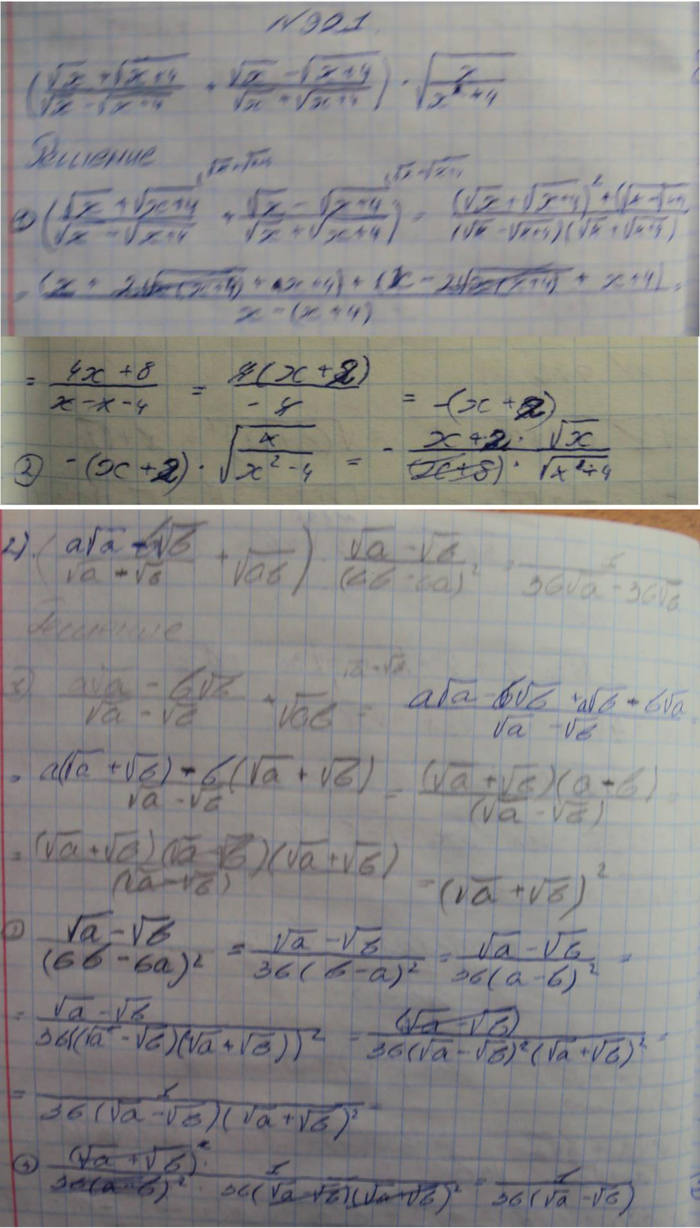 N 901
((√x + √(x+4))/(√x - √(x+4)) + (√x - √(x+4))/(√x + √(x+4))) · √(x/(x²+4))
Решение
① ((√x + √(x+4))/(√x - √(x+4)) + (√x - √(x+4))/(√x + √(x+4))) = ((√x + √(x+4))² + (√x - √(x+4))/((√x - √(x+4))(√x + √(x+4)))
= ((x + 2√(x(x+4)) + x+4) + (x - 2√(x(x+4)) + x+4))/(x - (x+4)) =
= (4x + 8)/(x - x - 4) = (4(x + 2))/(-4) = -(x + 2)
② -(x + 2) · √(x/(x² - 4)) = - (x + 2 · √x)/((x+8) · √(x²+4))
2). ((a√a - b√b)/(√a - √b) + √ab) · (√a - √b)/(6b - 6a)² = 1/(36√a - 36√b)
Решение
1) (a√a - b√b)/(√a - √b) + √ab = (a√a - b√b + a√b + b√a)/(√a - √b)
= (a(√a + √b) - b(√a + √b))/(√a - √b) = ((√a + √b)(a - b))/(√a - √b) =
= ((√a + √b)(√a - √b)(√a + √b))/(√a - √b) = (√a + √b)²
② (√a - √b)/(6b - 6a)² = (√a - √b)/(36(b - a)²) = (√a - √b)/(36(a - b)²) =
= (√a - √b)/(36((√a - √b)(√a + √b))²) = (√a - √b)/(36(√a - √b)²(√a + √b)²) =
= 1/(36(√a - √b)(√a + √b)²)
③ (√a + √b)²/(36(a - b)²) · 1/(36(√a - √b)(√a + √b)²) = 1/(36(√a - √b))